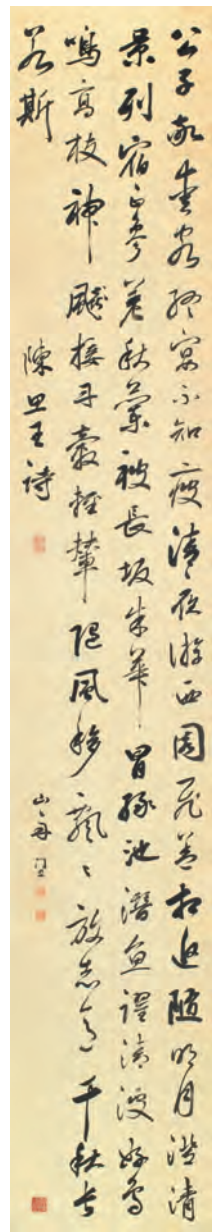 公子敬愛客終宴不知疲清夜游西園飛蓋相追隨明月澄清
景列宿正參差秋蘭被長坂朱華冒綠池潛魚躍清波好鳥
鳴高枝神飈接丹轂輕輦隨風移飄〻放志意千秋長
若斯
陳思王詩